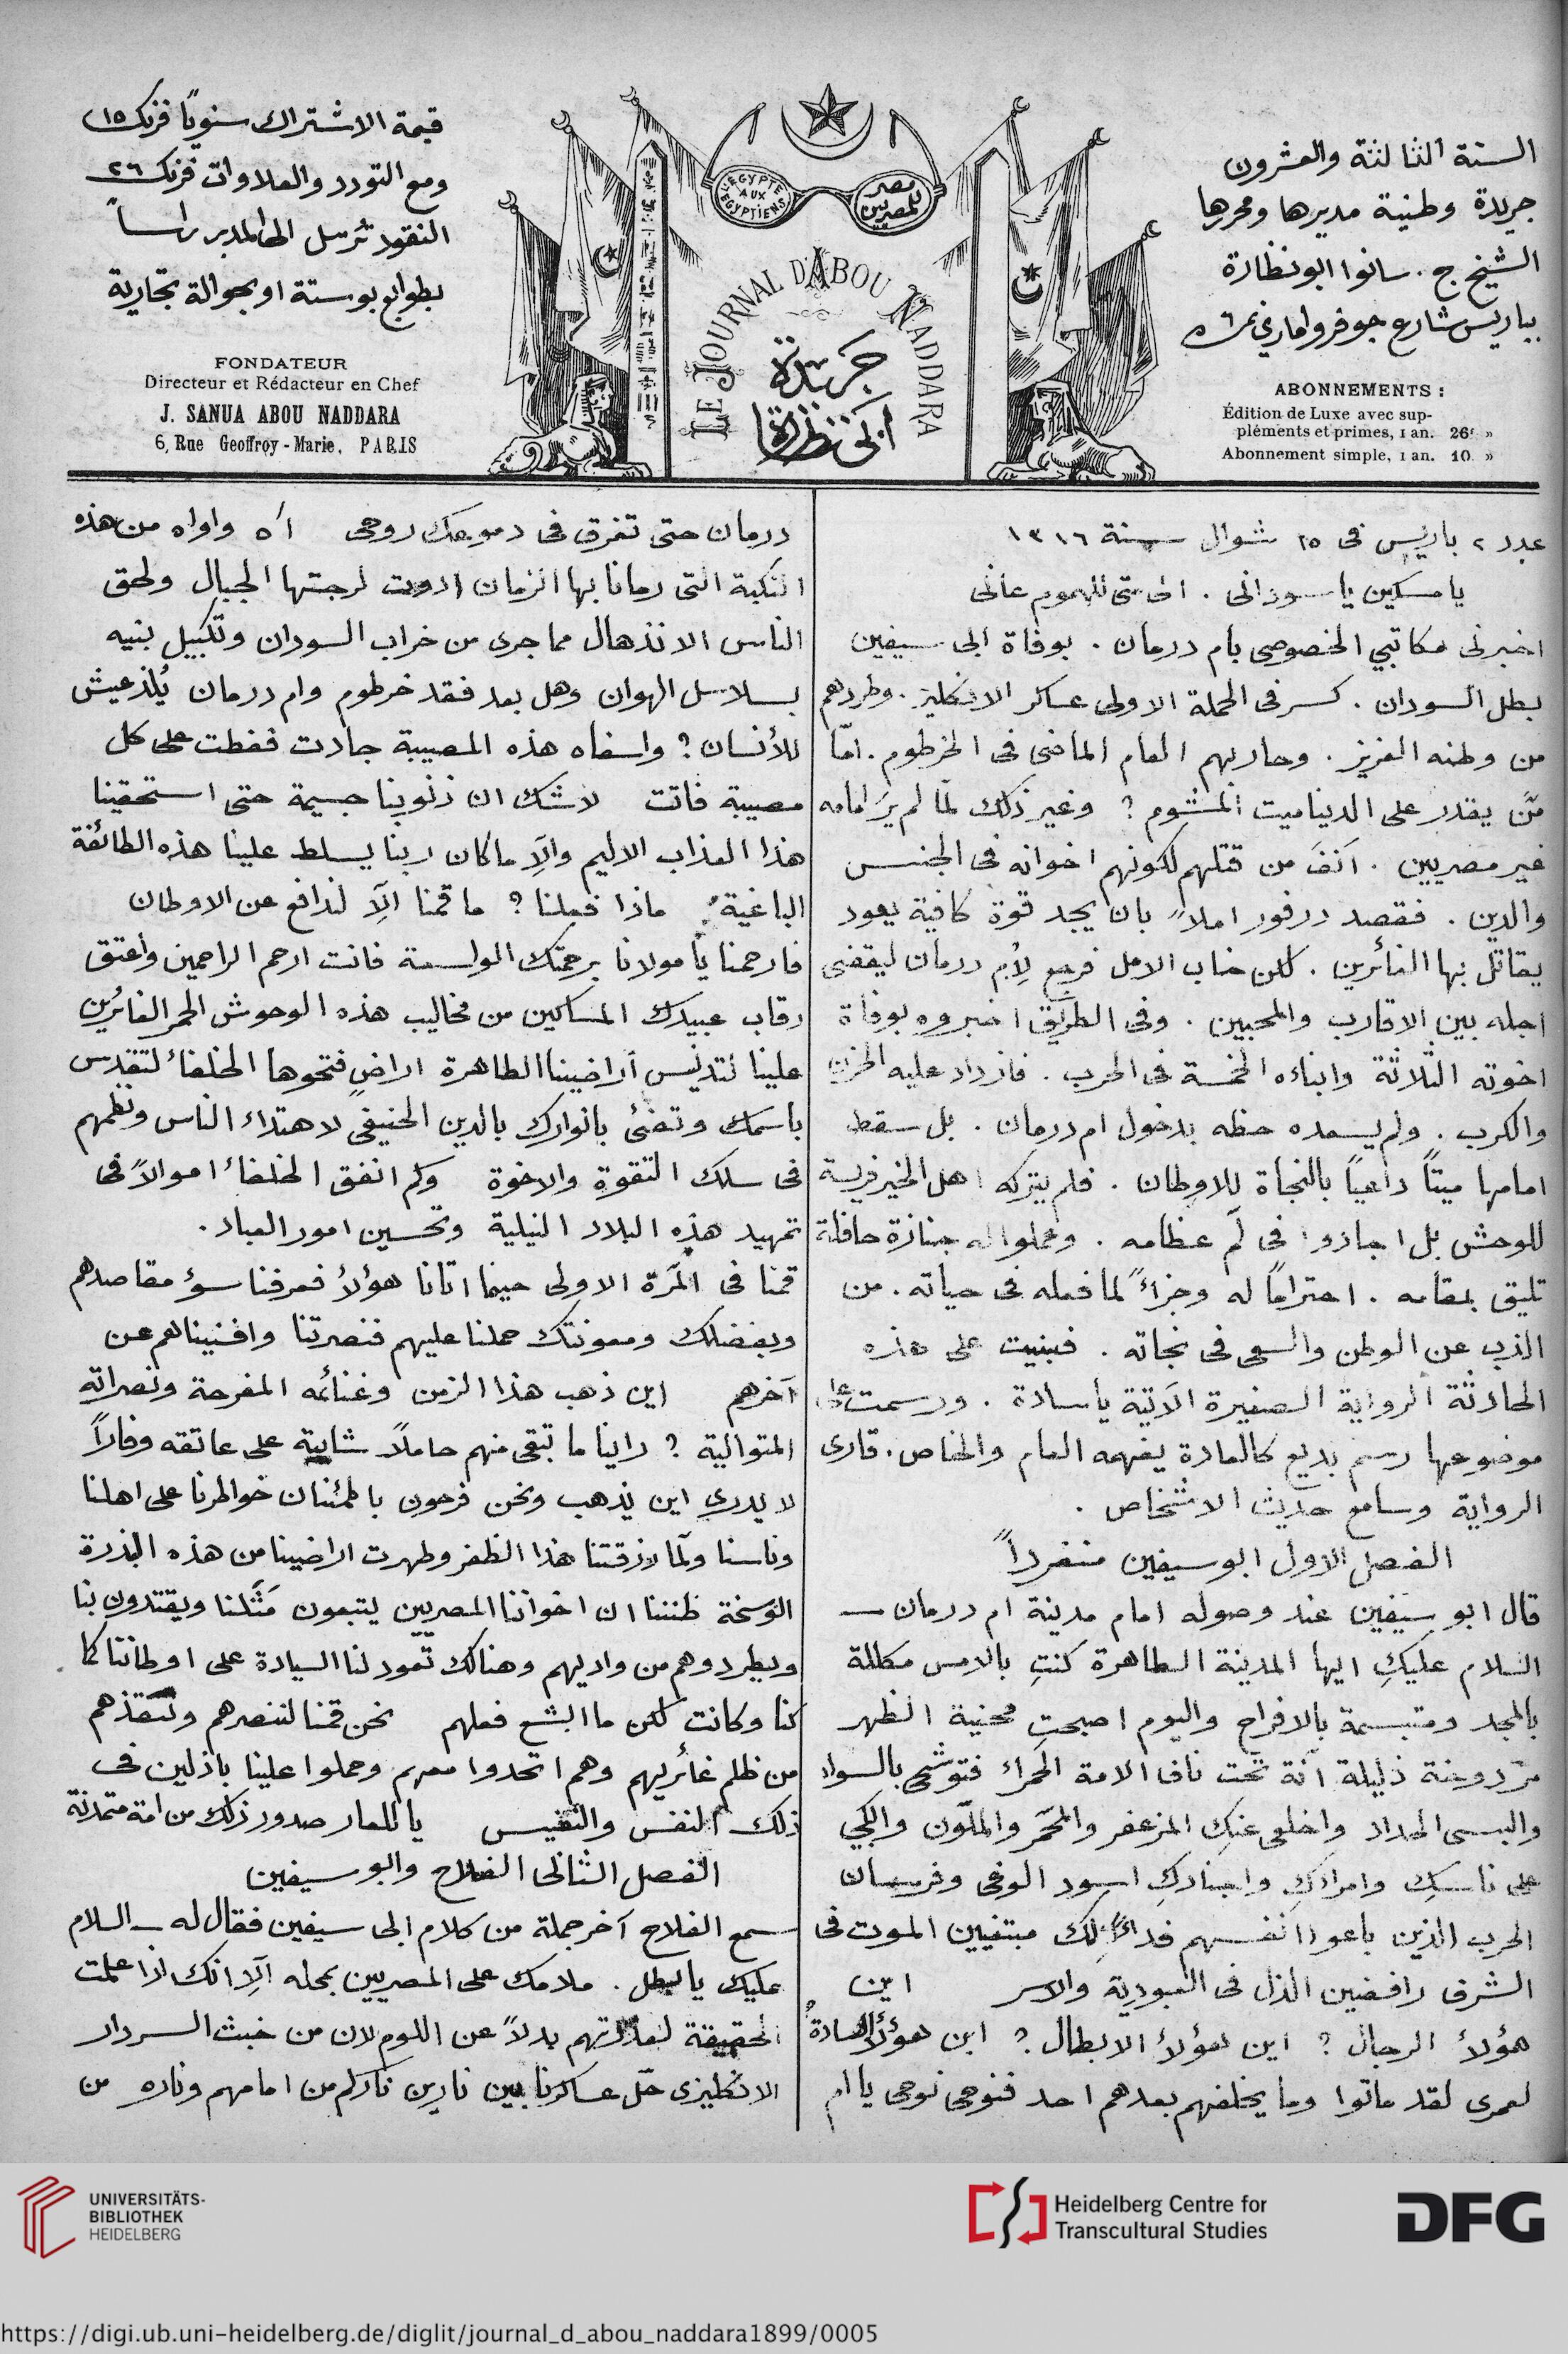 السنة الثالثة والعشرون
جريدة وطنية مديرها ومحررها
الشيخ ج. سانوا ابو نظارة
بباريس شارع جوفروا ماري نمر ٦
ABONNEMENTS :
Édition de Luxe avec sup-
pléments et primes, 1 an. 26f »
Abonnement simple, 1 an. 10 »
L'EGYPTE
AUX
EGYPTIENS
مصر
للمصريين
LE JOURNAL D'ABOU NADDARA
جريدة
ابي نظارة
قيمة الاشتراك سنويًا فرنك ١٥
ومع التورد والعلاوات فرنك ٢٦
النقود تُرسل الى المدير راساً
بطوابع بوستة او بحوالة تجارية
FONDATEUR
Directeur et Rédacteur en Chef
J. SANUA ABOU NADDARA
6, Rue Geoffroy-Marie, PARIS
عدد ٢ باريس فى ٢٥ شوال سنة ١٣١٦
يا مسكين يا سودانى . الى متى للهموم عانى
اخبرنى مكاتبي الخصوصى بام درمان . بوفاة ابى سيفين
بطل السودان . كسر فى الحملة الاولى عساكر الانكليز . وطردهم
من وطنه العزيز . وحاربهم العام الماضى فى الخرطوم . امّا
مَن يقدر على الديناميت المشوم ؟ وغير ذلك لمّا لم يرَ امامه
غير مصريين . اَنَفَ من قتلهم لكونهم اخوانه فى الجنس
والدين . فقصد درفور املاً بان يجد قوة كافية يعود
يقاتل بها الغائرين . لكن خاب الامل فرجع لِأم درمان ليقضى
اجله بين الاقارب والمحبين . وفى الطريق اخبروه بوفاة
اخوته الثلاثة وابناءه الخمسة فى الحرب . فازداد عليه الحزن
والكرب . ولم يسعده حظه بدخول ام درمان . بل سقط
امامها ميتاً داعياً بالنجاة للاوطان . فلم يتركه اهل الخير فريسة
للوحش بل اجادوا فى لَم عظامه . وعملوا له جنازة حافلة
تليق بمقامه . احتراماً له وجزاءً لما فعله فى حياته . من
الذب عن الوطن والسعى فى نجاته . فبنيت على هذه
الحادثة الرواية الصغيرة الآتية يا سادة . ورسمت على
موضوعها رسم بديع كالعادة يفهمه العام والخاص . قارى
الرواية وسامع حديث الاشخاص .
الفصل الاول ابو سيفين منفرداً
قال ابو سيفين عند وصوله امام مدينة ام درمان ــ
السلام عليكِ ايها المدينة الطاهرة كنتِ بالامس مكللة
بالمجد ومتبسمة بالافراح واليوم اصبحتِ محنية الظهر
مردوخة ذليلة آنة تحت ناف الامة الحمراء فتوشحى بالسواد
والبسى الحداد واخلعى عنكِ المزعفر والمحمر والملوّن وابكي
على ناسكِ وامرادكِ واجنادكِ اسود الوغى وفرسان
الحرب الذين باعوا انفسهم فداءً لكِ مبتغيين الموت فى
الشرف رافضين الذل فى العبودية والاسر اين
هؤلاء الرجال ؟ اين هؤلاء الابطال ؟ اين هؤلاء السادة ؟
لعمرى لقد ماتوا وما يخلفهم بعدهم احد فنوحى نوحى يا ام
درمان حتى تغرق فى دموعك روحى آه واواه من هذه
النكبة التى رمانا بها الزمان اروت لرجتها الجبال ولحق
الناس الانذهال مما جرى من خراب السودان وتكبيل بنيه
بسلاسل الهوان وهل بعد فقد خرطوم وام درمان يُلذ عيش
للأنسان ؟ واسفاه هذه المصيبة جادت فغطت على كل
مصيبة فاتت لاشك ان ذنوبنا جسيمة حتى استحقينا
هذا العذاب الاليم والاّ ما كان ربنا يسلط علينا هذه الطائفة
الباغية ماذا فعلنا ؟ ما قمنا الاّ لندافع عن الاوطان
فارحمنا يا مولانا برحمتك الواسعة فانت ارحم الراحمين واعتق
رقاب عبيدك المساكين من مخاليب هذه الوحوش الحمر الغائرين
علينا لتدنيس اراضينا الطاهرة اراضٍ فتحوها الخلفاء لتقدس
باسمك وتضئ بانوارك بالدين الحنيفى لاهتداء الناس ونظمهم
فى سلك التقوة والاخوة وكم انفق الخلفاء اموالاً فى
تمهيد هذه البلاد النيلية وتحسين امور العباد .
قمنا فى المَرة الاولى حينما اتانا هؤلاء فعرفنا سؤ مقاصدهم
وبفضلك ومعونتك حملنا عليهم فنصرتنا وافنيناهم عن
آخرهم اين ذهب هذا الزمن وغنائمه المفرحة ونصراته
المتوالية ؟ راينا ما تبقى منهم حاملاً شابيه على عاتقه وفاراً
لا يدرى اين يذهب ونحن فرحون باطمئنان خواطرنا على اهلنا
وناسنا ولمّا رزقتنا هذا الظفر وطهرت اراضينا من هذه البذرة
الوسخة ظننا ان اخواننا المصريين يتبعون مَثَلنا ويقتدون بنا
ويطردوهم من واديهم وهنالك تعود لنا السيادة على اوطاننا كما
كنا وكانت لكن ما ابشع فعلهم نحن قمنا لننصرهم وننقذهم
من ظلم غائريهم وهم اتحدوا معهم وحملوا علينا باذلين فى
ذلك النفس والنفيس يا للعار صدور ذلك من امة متمدنة
الفصل الثانى الفلاح وابو سيفين
سمع الفلاح آخر جملة من كلام ابى سيفين فقال له ــ السلام
عليك يا بطل . ملامك على المصريين بمحله الاّ انك اذا علمت
الحقيقة لعذرتهم بدلاً عن اللوم لان من خبث السردار
الانكليزى حلّ عساكرنا بين نارين نار لكم من امامهم وناره من
UNIVERSITÄTS-
BIBLIOTHEK
HEIDELBERG
Heidelberg Centre for
Transcultural Studies
DFG
https://digi.ub.uni-heidelberg.de/diglit/journal_d_abou_naddara1899/0005